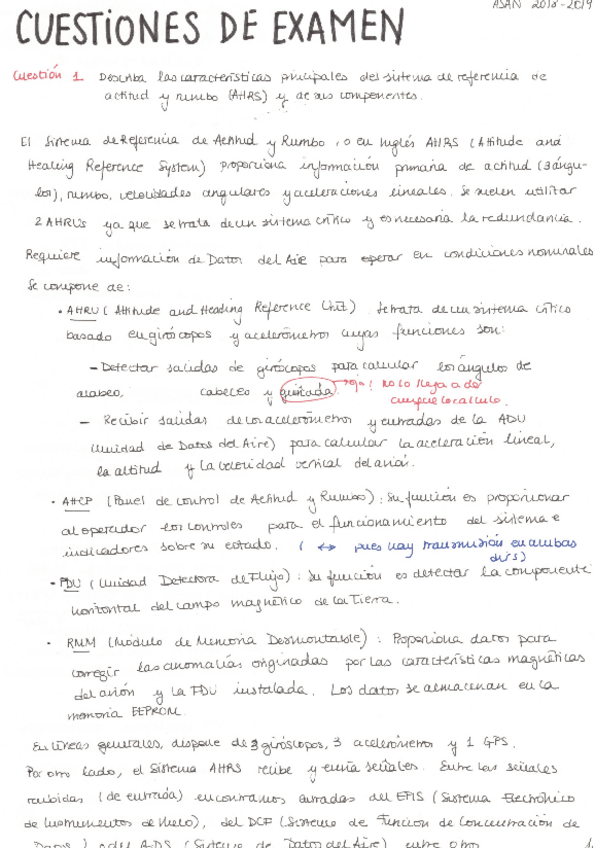 ASAN 2018-2019
CUESTIONES DE EXAMEN
Cuestión 1 Describa las características principales del sistema de referencia de
actitud y rumbo (AHRS) y de sus componentes.
El Sistema de Referencia de Actitud y Rumbo, o en Inglés AHRS (Attitude and
Heading Reference System) proporciona información primaria de actitud (3 ángu-
los), rumbo, velocidades angulares y aceleraciones lineales. Se suelen utilizar
2 AHRUs ya que se trata de un sistema crítico y es necesaria la redundancia.
Requiere información de Datos del Aire para operar en condiciones nominales
Se compone de:
· AHRU (Attitude and Heading Reference Unit). Se trata de un sistema crítico
basado en giróscopos y acelerómetros cuyas funciones son:
- Detectar salidas de giróscopos para calcular los ángulos de
alabeo, cabeceo y guiñada. → ojo! No lo llega a dar
aunque lo calcula.
- Recibir salidas de los acelerómetros y entradas de la ADU
(Unidad de Datos del Aire) para calcular la aceleración lineal,
la altitud y la velocidad vertical del avión.
· AHCP (Panel de control de Actitud y Rumbo): Su función es proporcionar
al operador los controles para el funcionamiento del sistema e
indicadores sobre su estado. ( ↔ pues hay transmisión en ambas
dirs)
· FDU (Unidad Detectora de Flujo): Su función es detectar la componente
horizontal del campo magnético de la Tierra.
· RMM (Módulo de Memoria Desmontable): Proporciona datos para
corregir las anomalías originadas por las características magnéticas
del avión y la FDU instalada. Los datos se almacenan en la
memoria EEPROM.
En líneas generales, dispone de 3 giróscopos, 3 acelerómetros y 1 GPS.
Por otro lado, el Sistema AHRS recibe y envía señales. Entre las señales
recibidas (de entrada) encontramos entradas del EFIS (Sistema Electrónico
de Instrumentos de Vuelo), del DCF (Sistema de Función de Concentración de
Datos) o del ADS (Sistema de Datos del Aire) entre otro